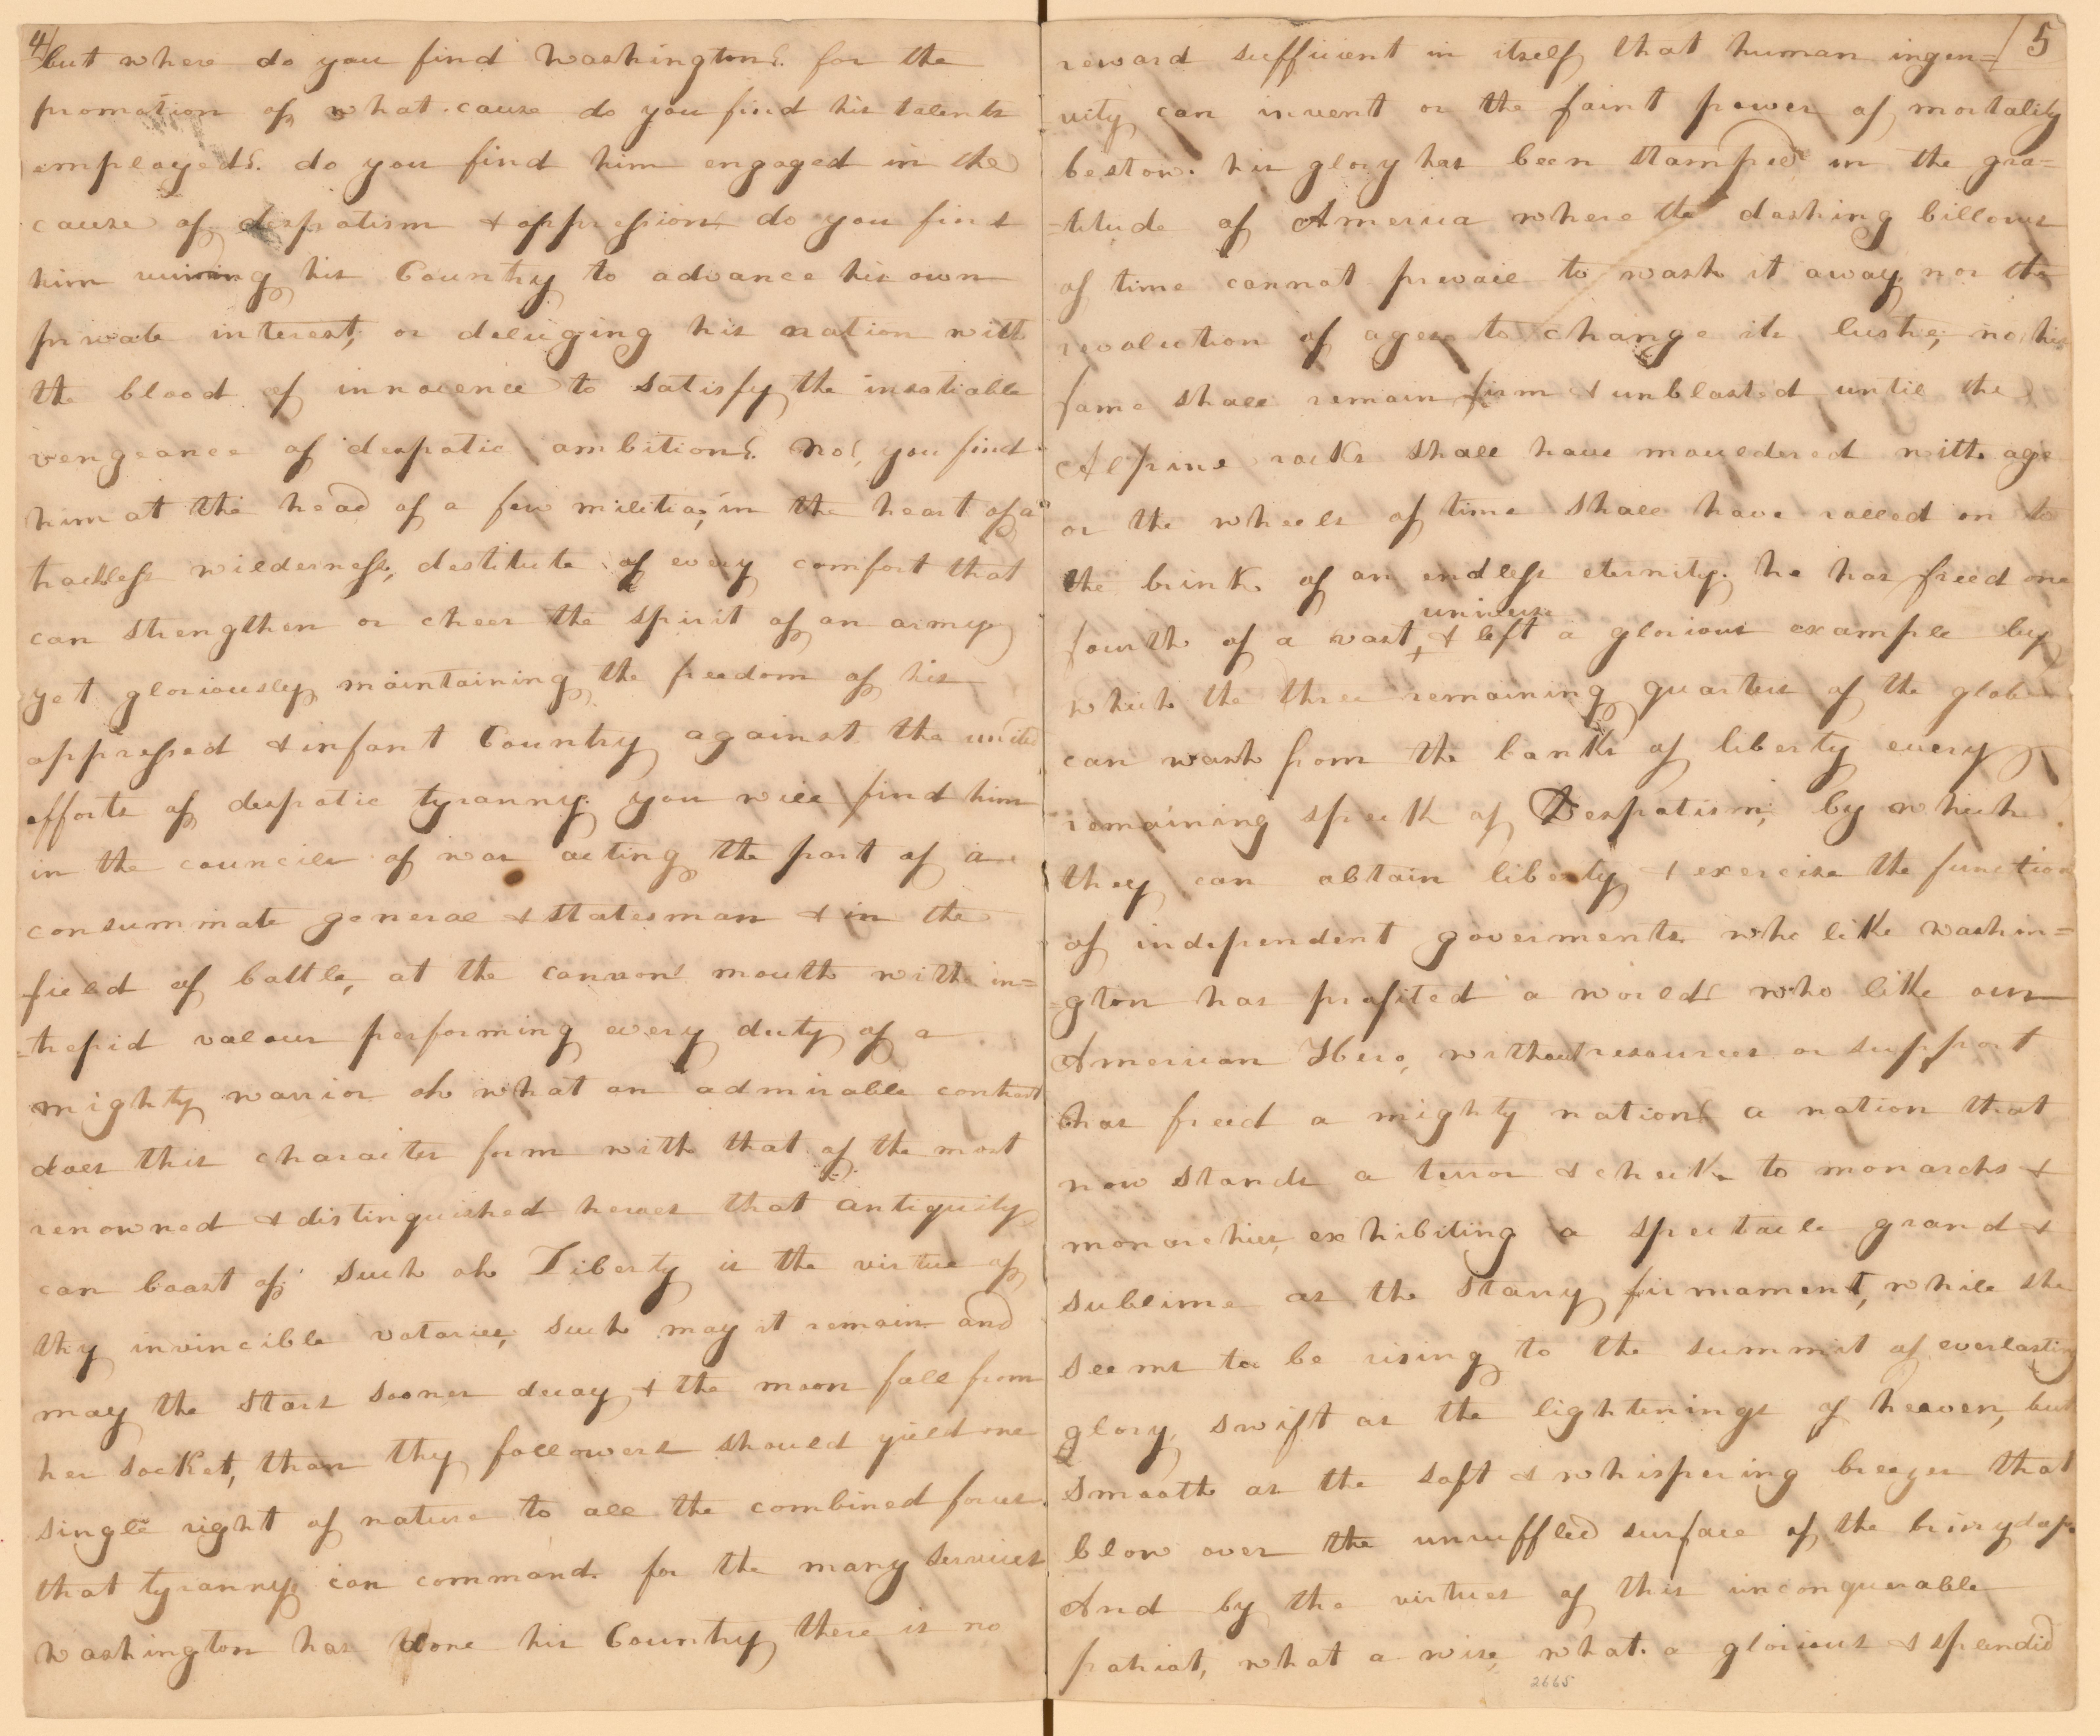 4/
but where do you find Washington? for the
promotion of what cause do you find his talents
employed? do you find him engaged in the
cause of despotism & oppression do you find
him ruining his Country to advance his own
private interest, or deluging his nation with
the blood of innocence to satisfy the insatiable
vengeance of despotic ambition? No!, you find
him at the head of a few militia, in the heart of a
trackless wilderness, destitute of every comfort that
can strengthen or cheer the spirit of an army
yet gloriously maintaining the freedom of his
oppressed & infant Country against the united
efforts of despotic tyranny. you will find him
in the councils of war acting the part of a
consummate general & statesman & in the
field of battle, at the cannon' mouth with in=
=trepid valour performing every duty of a
mighty warrior oh what an admirable contrast
does this character form with that of the most
renowned & distinguished heroes that antiquity
can boast of; Such oh Liberty is the virtue of
thy invincible votaries, such may it remain and
may the stars sooner decay & the moon fall from
her socket, than thy followers should yield one
single right of nature to all the combined forces
that tyranny can command. for the many services
Washington has done his Country there is no
5
reward sufficient in itself that human ingen=
uity can invent or the faint power of mortality
bestow. his glory has been stamped in the gra=
=titude of America where the dashing billows
of time cannot prevail to wash it away, nor the
revolution of ages to change its lustre, no, his
fame shall remain firm & unblasted until the
Alpine rocks shall have mouldered with age
or the wheels of time shall have rolled on to
the brink of an endless eternity. he has freed one
universe
fourth of a vast, + & left a glorious example by
which the three remaining quarters of the globe
can wash from the banks of liberty every
remaining speck of Despotism; by which
they can obtain liberty & exercise the function
of independent goverments. who like washin=
=gton has profited a world? who like our
American Hero, without resources or support
has freed a mighty nation? a nation that
now stands a terror & check to monarchs &
monarchies, exhibiting a spectacle grand &
sublime as the starry firmament, while she
seems to be rising to the summit of everlasting
glory, swift as the lightenings of heaven, but
smooth as the soft & whispering breezes that
blow over the unruffled surface of the briny deep.
And by the virtues of this unconquerable
patriot, what a wise, what a glorious & spendid
2665